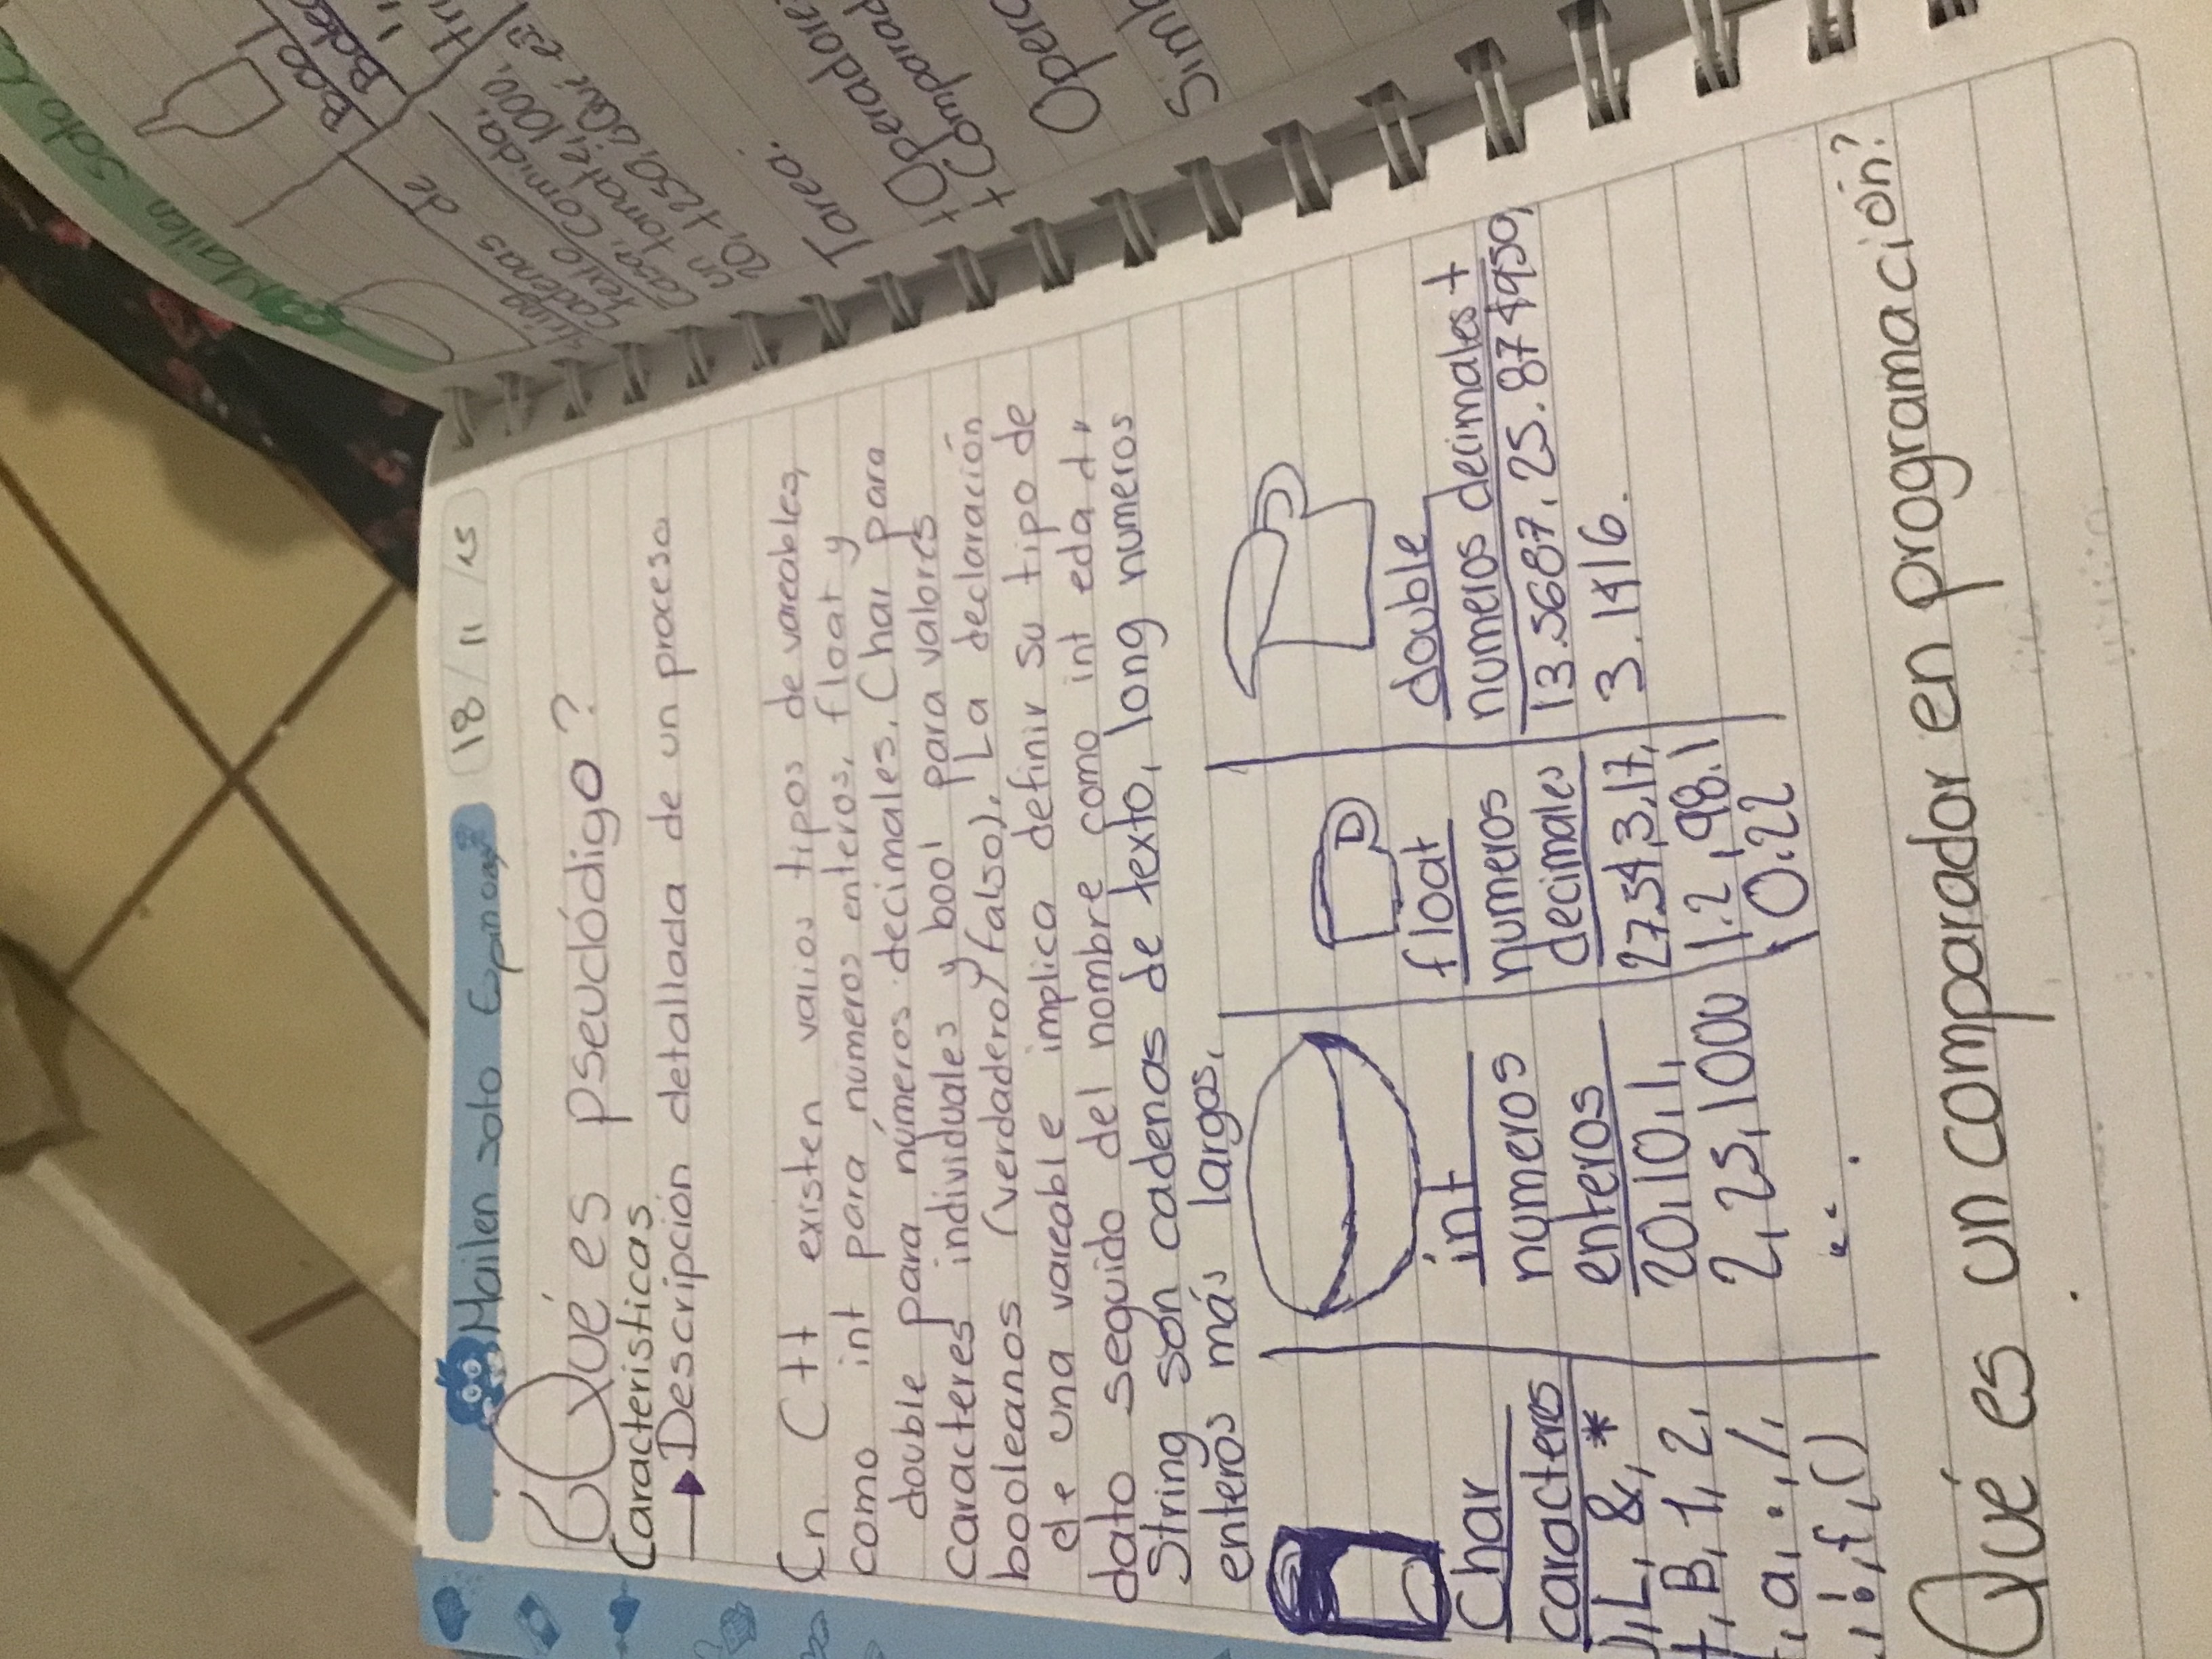 Mailen soto Espinoza
18/11/25
Qué es pseudódigo?
Caracteristicas
Descripción detallada de un proceso
En C++ existen varios tipos de vareables,
como int para números enteros, float y
double para números decimales, Char para
caracteres individuales y bool para valores
booleanos (verdadero/falso), La declaración
de una vareable implica definir su tipo de
dato seguido del nombre como int eda d,
String son cadenas de texto, long numeros
enteros más largos,
Char
caracteres
L, &, *
B, 1, 2,
a, :, /,
¡, {, ()
int
numeros
enteros
20, 10, 1,
2, 25, 1000
...
float
numeros
decimales
27.54, 3.17,
1.2, 98.1
0.22
double
numeros decimales +
13.5687, 25.874950,
3.1416.
Qué es un comparador en programación?
Mailen Soto
String
cadenas de
texto
casa, comida,
un tomate, 1000,
Bool
Tarea:
+Operadore
+Comparad
Opera
Simb